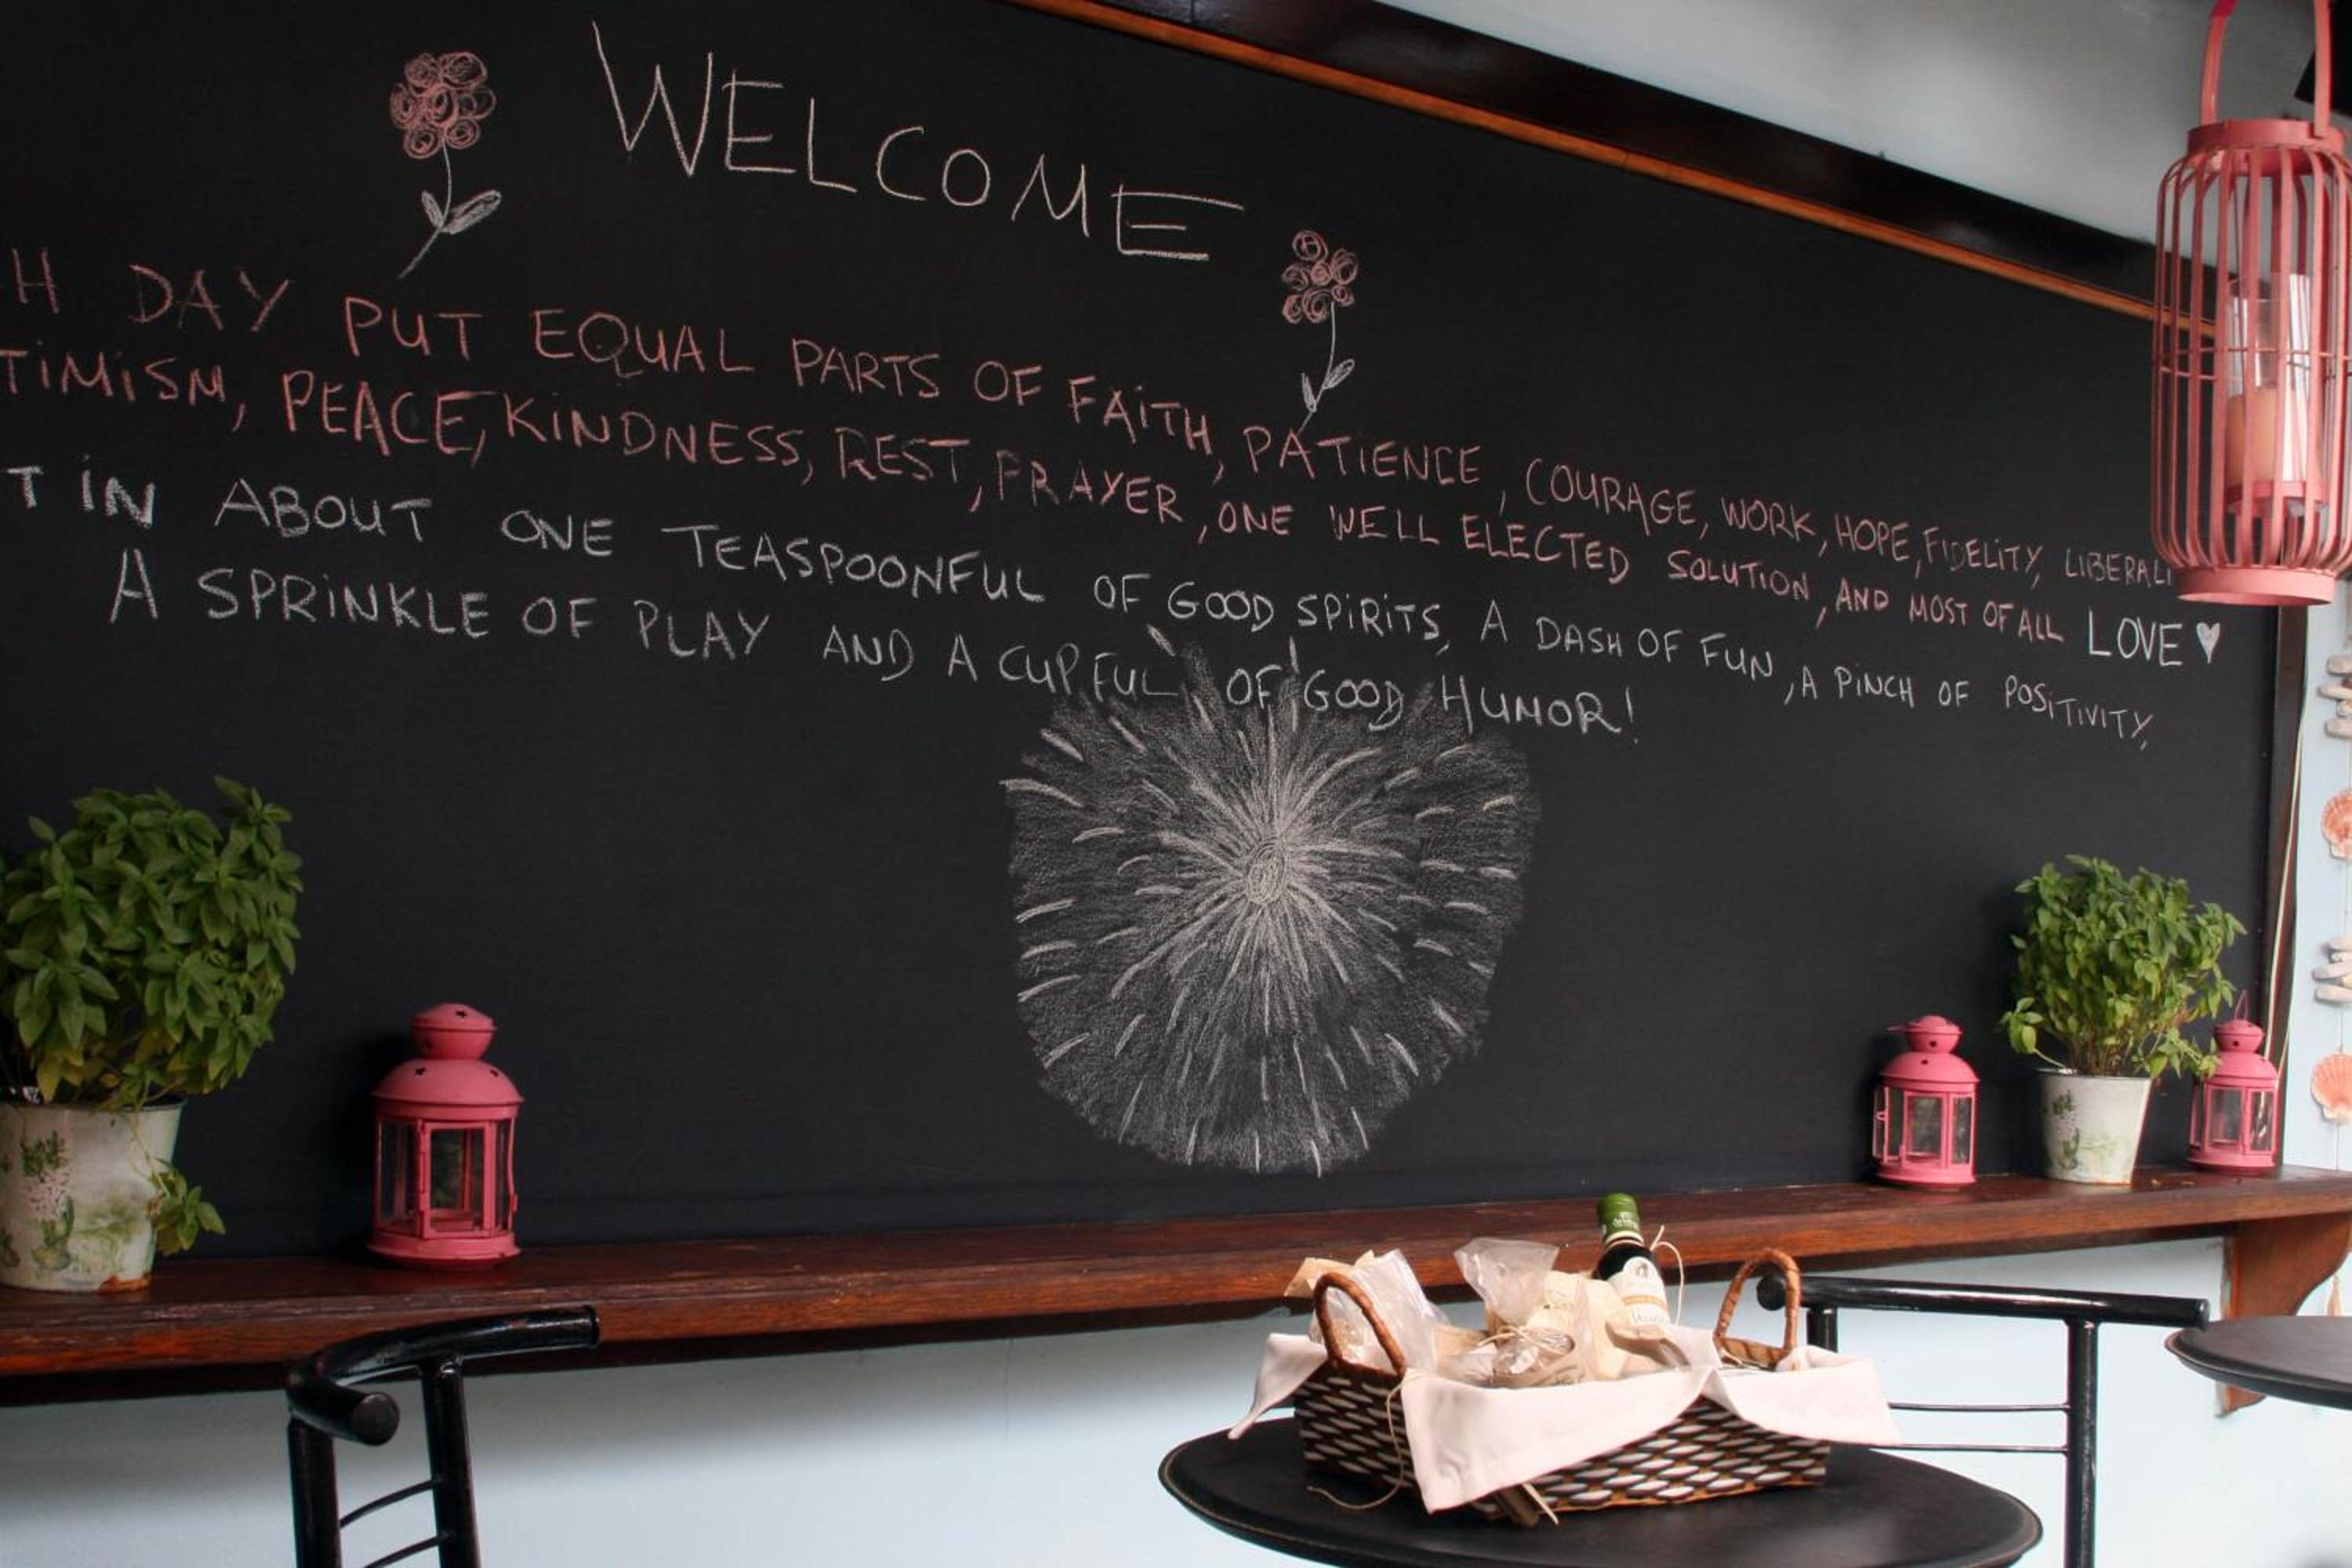 WELCOME
H DAY PUT EQUAL PARTS OF FAITH, PATIENCE, COURAGE, WORK, HOPE, FIDELITY, LIBERALI
TIMISM, PEACE, KINDNESS, REST, PRAYER, ONE WELL ELECTED SOLUTION, AND MOST OF ALL LOVE ♥
T IN ABOUT ONE TEASPOONFUL OF GOOD SPIRITS, A DASH OF FUN, A PINCH OF POSITIVITY,
A SPRINKLE OF PLAY AND A CUPFUL OF GOOD HUMOR!